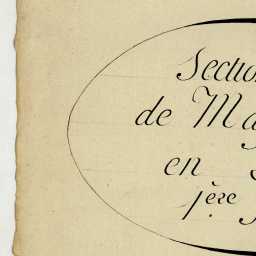 Section
de Ma
en
1ère